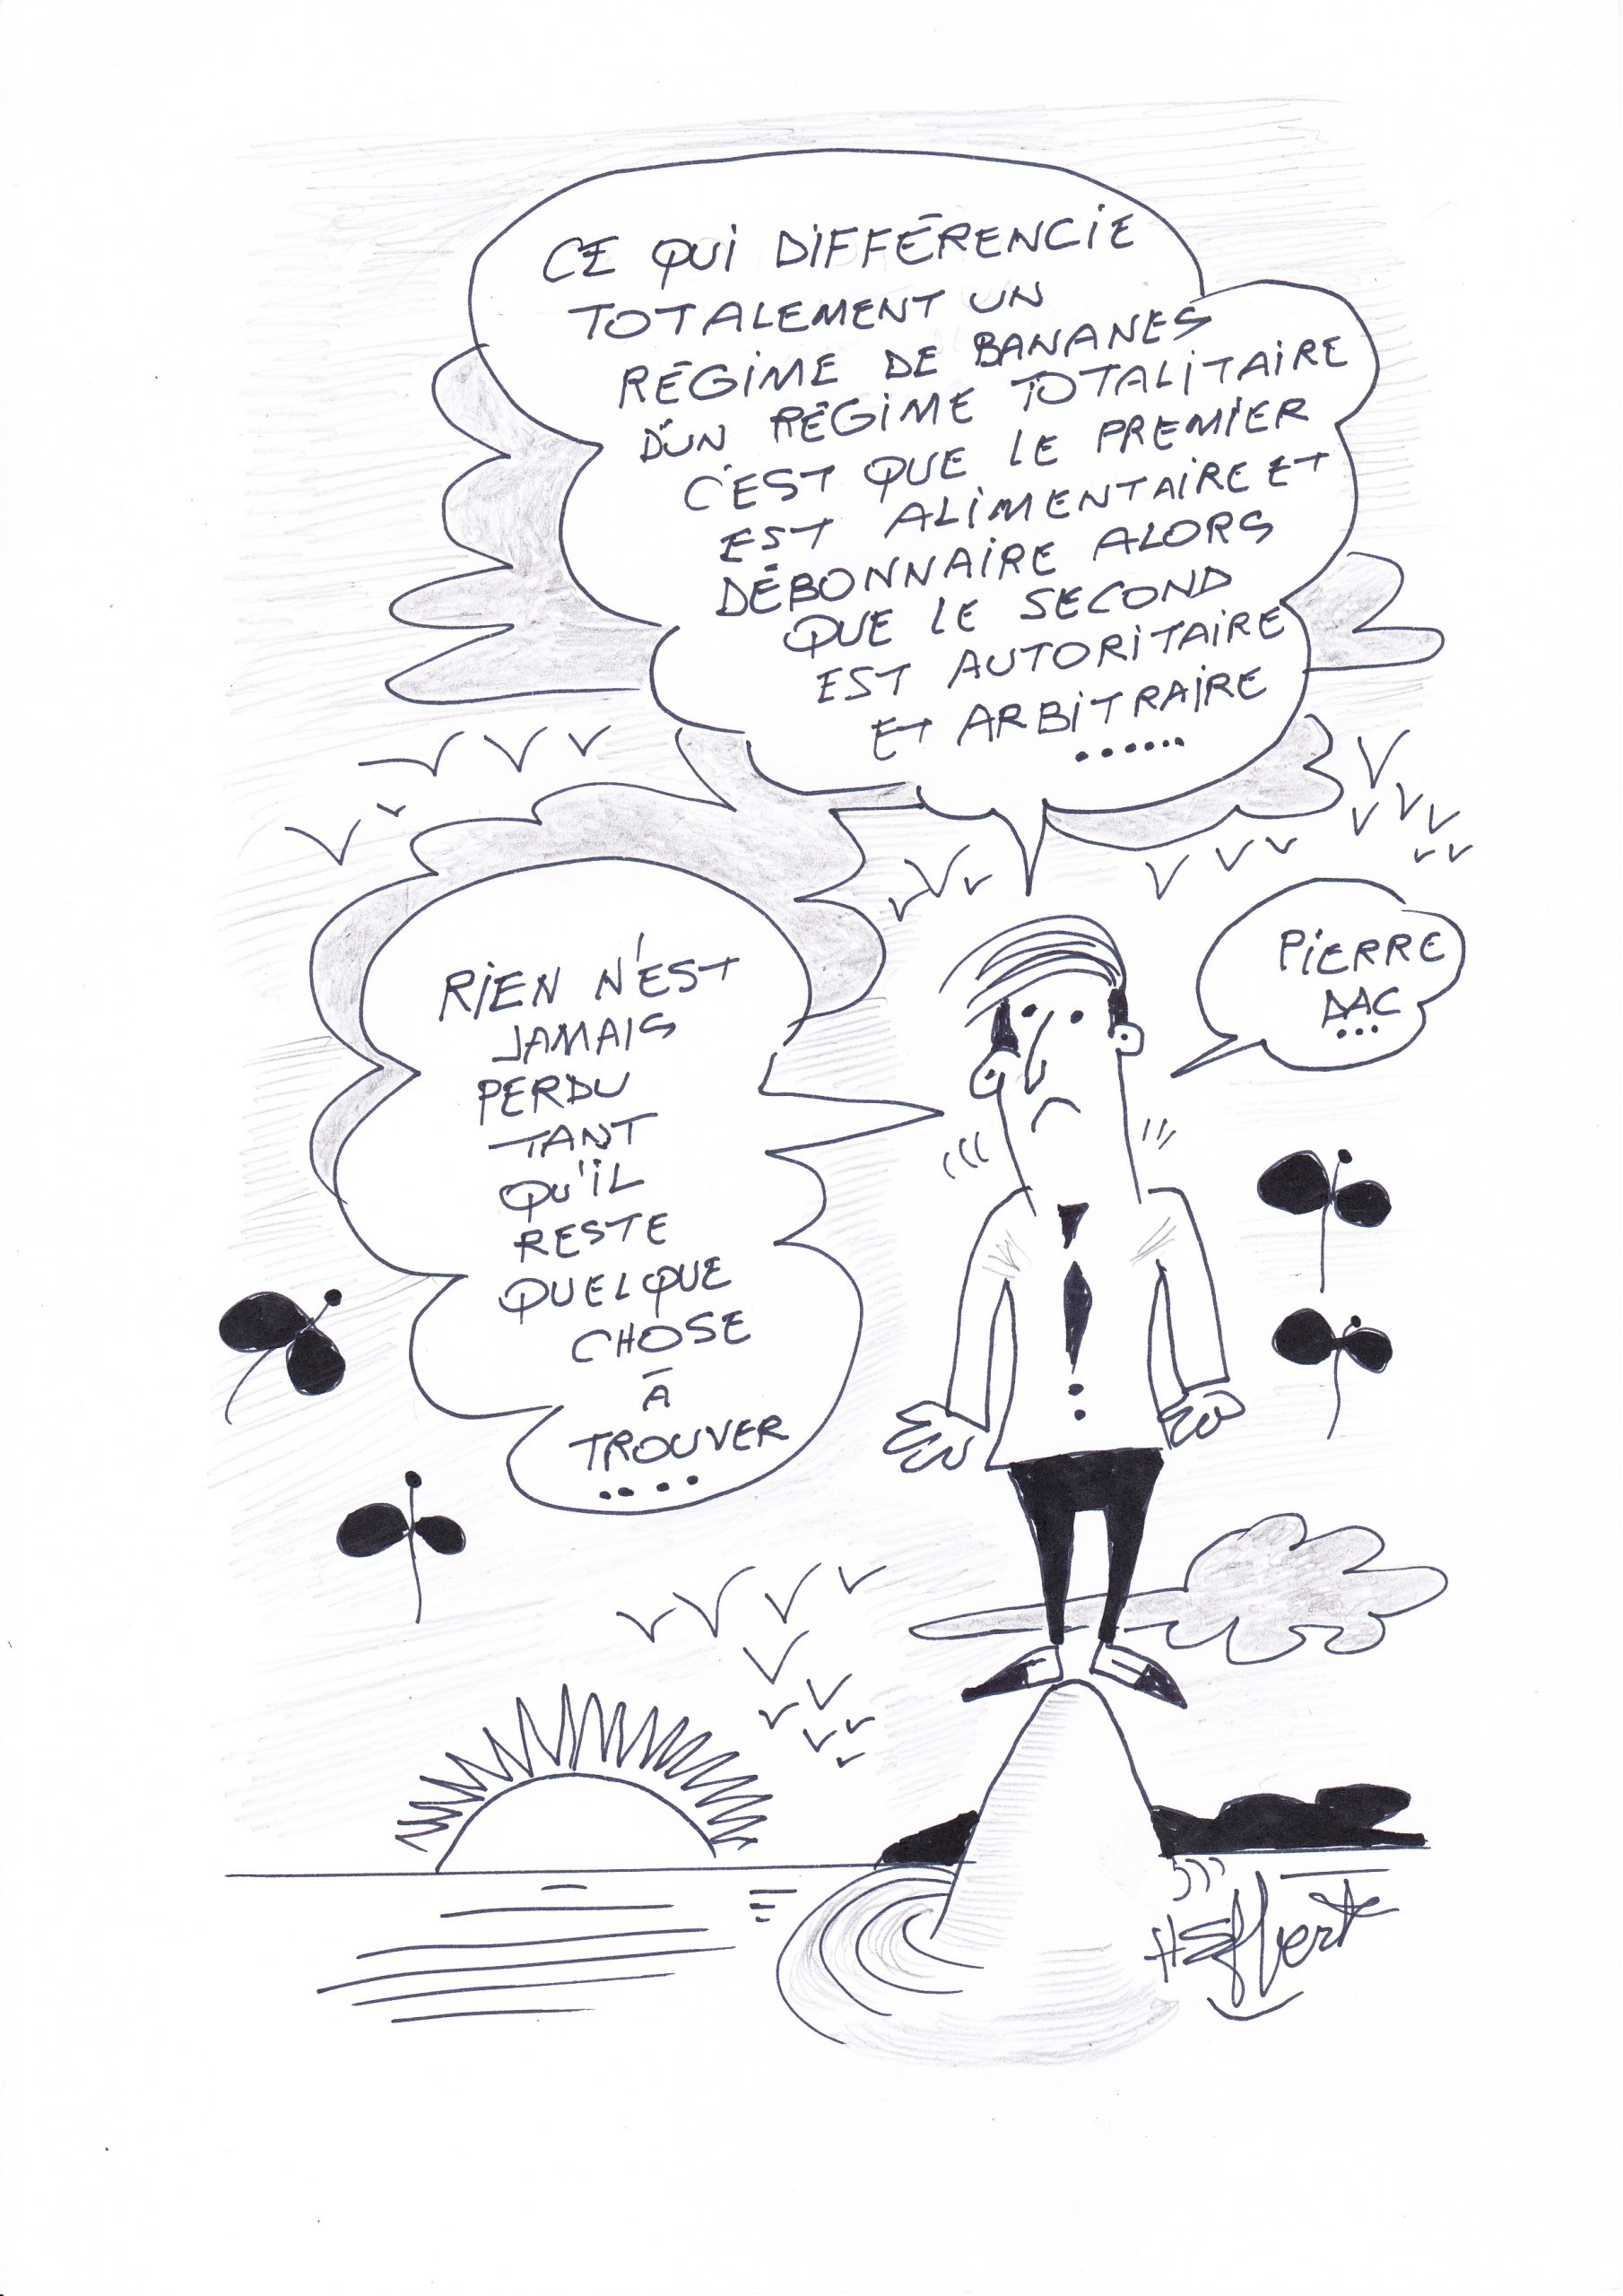 CE QUI DIFFÉRENCIE
TOTALEMENT UN
RÉGIME DE BANANES
D'UN RÉGIME TOTALITAIRE
C'EST QUE LE PREMIER
EST ALIMENTAIRE ET
DÉBONNAIRE ALORS
QUE LE SECOND
EST AUTORITAIRE
ET ARBITRAIRE
......
PIERRE
DAC
...
RIEN N'EST
JAMAIS
PERDU
TANT
QU'IL
RESTE
QUELQUE
CHOSE
À
TROUVER
....